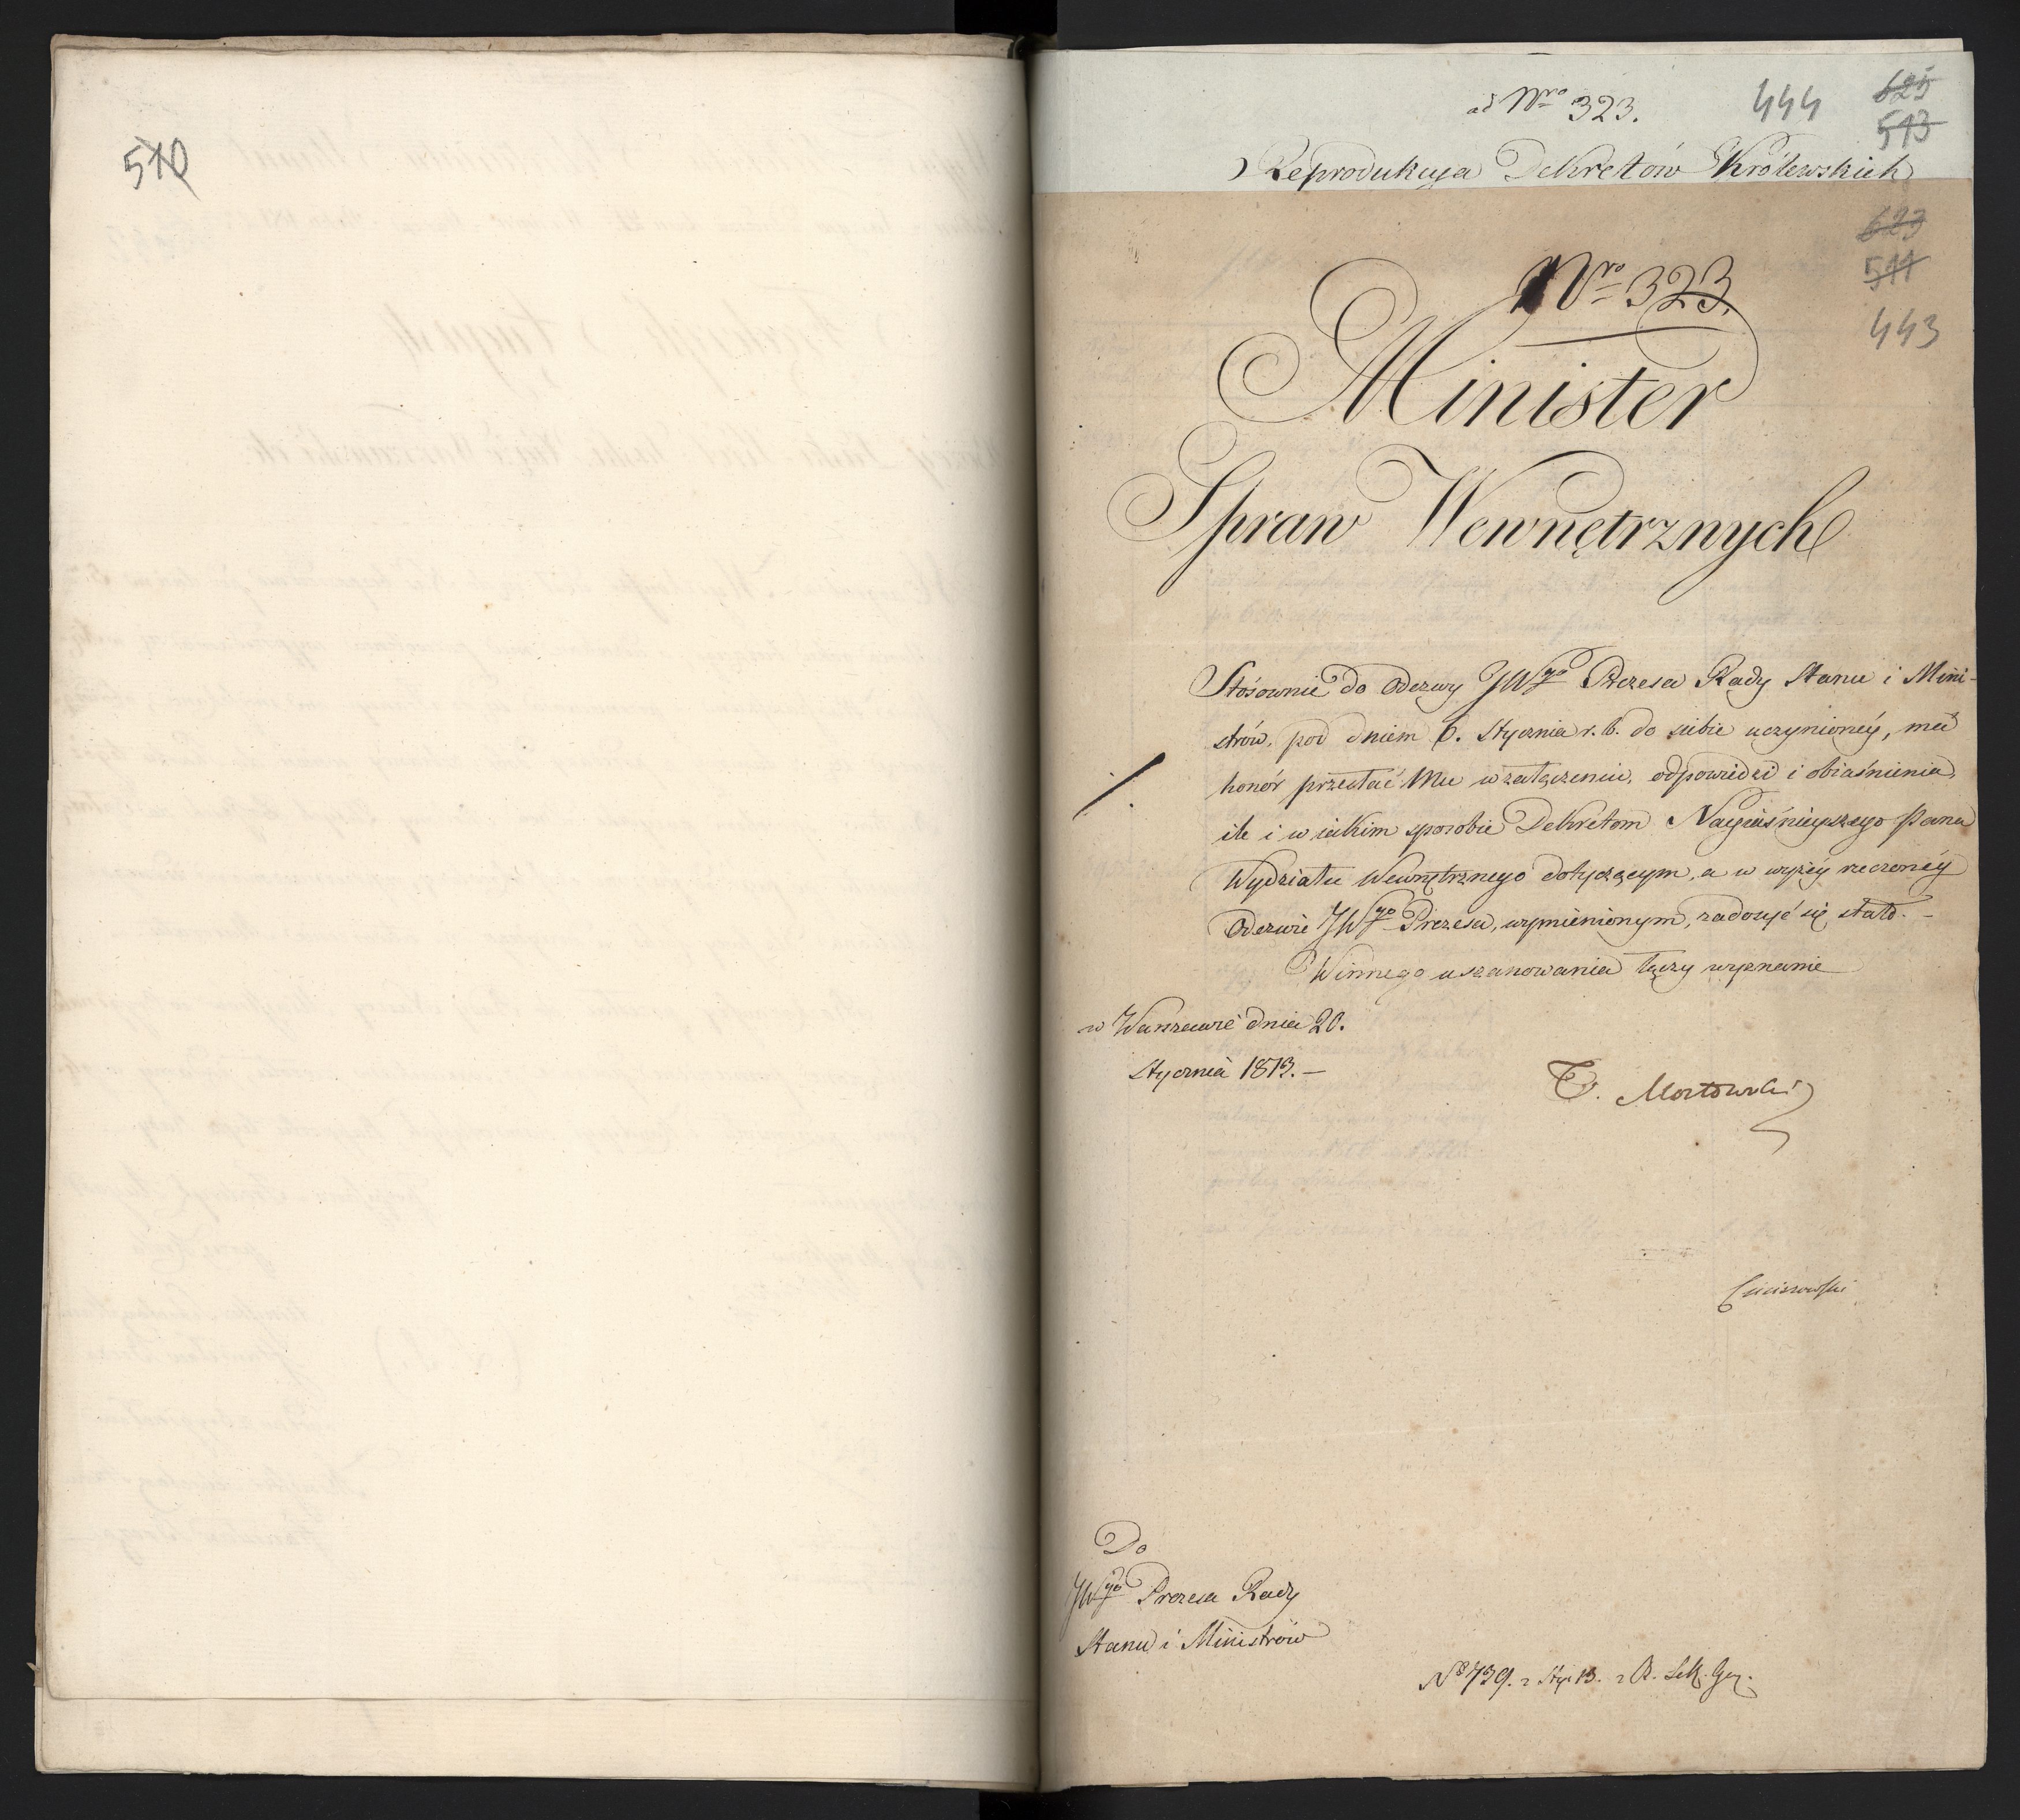 510
ad Nro 323.
444
625
513
Reprodukcya Dekretów Królewskich
623
511
443
Nro 323.
Minister
Spraw Wewnętrznych
Stósownie do Odezwy JWgo Prezesa Rady Stanu i Mini-
strów, pod dniem 6. Stycznia r. b. do siebie uczynionéy, ma
honór przesłać Mu w załączeniu, odpowiedzi i obiaśnienia,
ile i w iakim sposobie Dekretom Nayiaśnieyszego Pana
Wydziału Wewnętrznego dotyczącym, a w wyżéy rzeczonéy
Odezwie JWgo Prezesa, wymienionym, zadosyć się stało. -
Winnego uszanowania łączy wyznanie
w Warszawie dnia 20.
Stycznia 1813. -
T. Mostowski
Do
JWgo Prezesa Rady
Stanu i Ministrów
No 739. z Stye 13. z R. Sek. Gen.